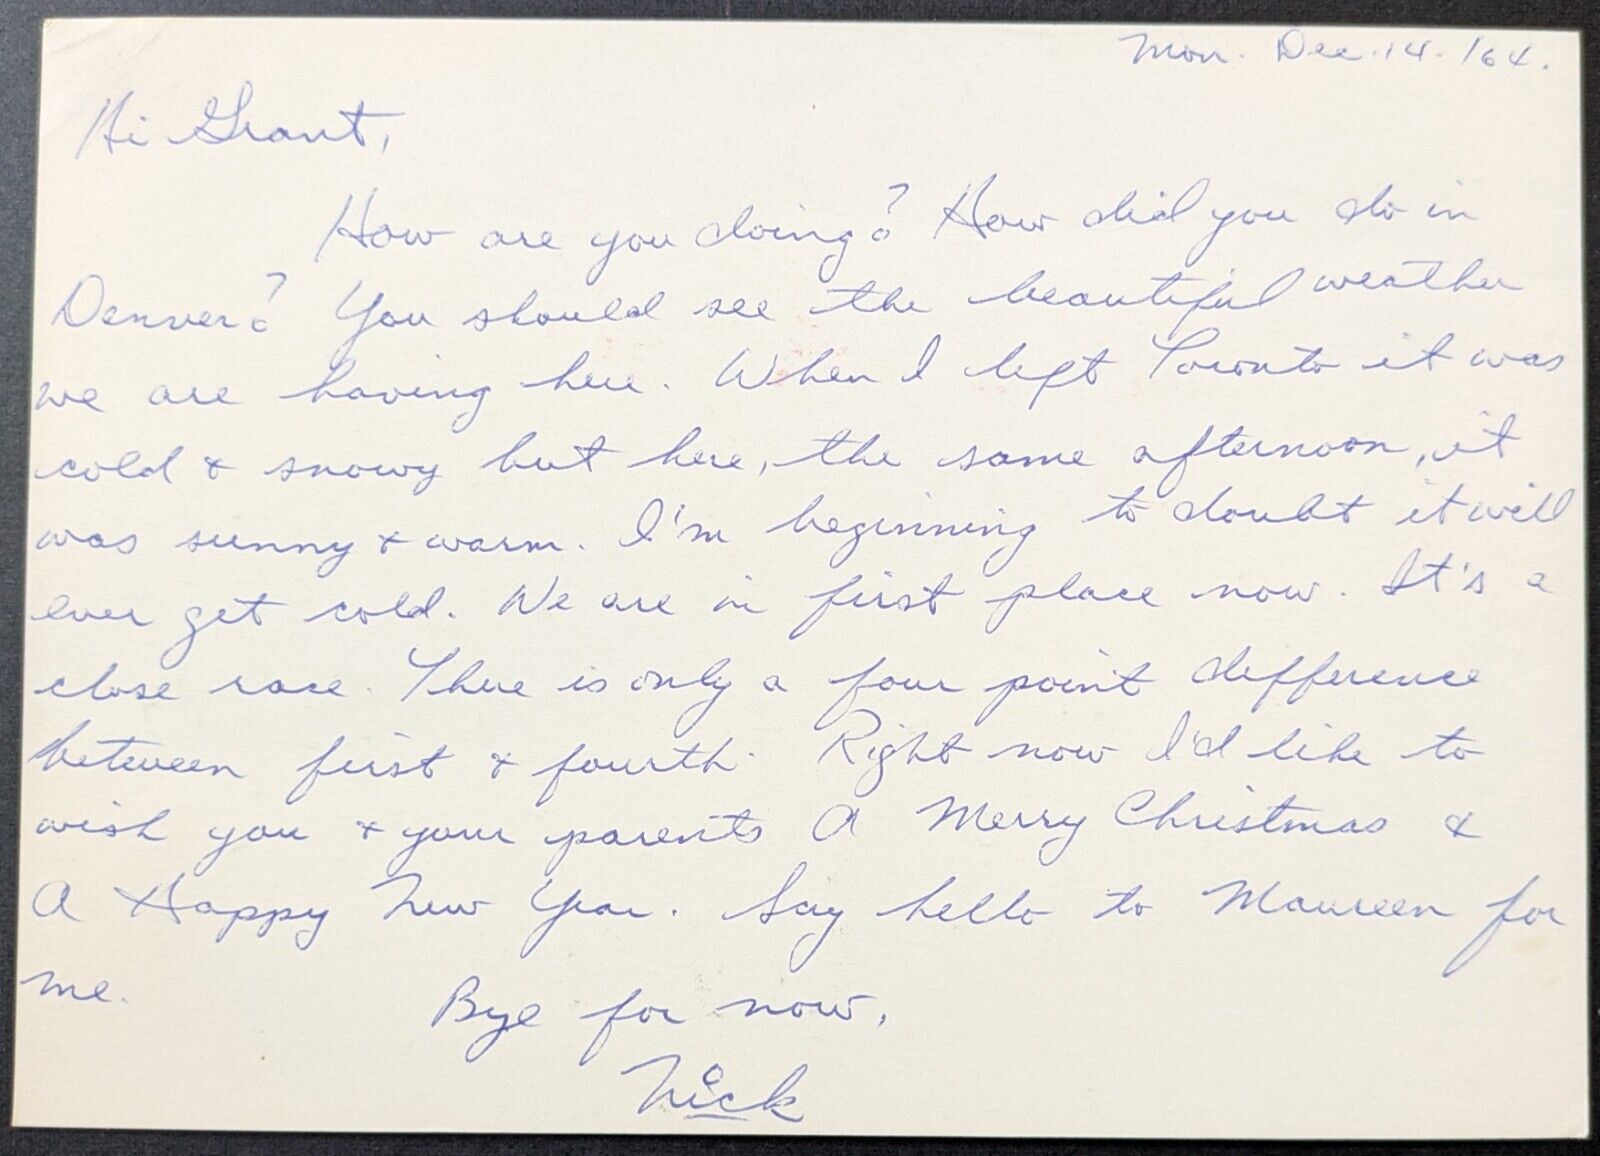 Mon. Dec. 14. /64.
Hi Grant,
How are you doing? How did you do in
Denver? You should see the beautiful weather
we are having here. When I left Toronto it was
cold & snowy but here, the same afternoon, it
was sunny & warm. I'm beginning to doubt it will
ever get cold. We are in first place now. It's a
close race. There is only a four point difference
between first & fourth. Right now I'd like to
wish you & your parents A Merry Christmas &
A Happy New Year. Say hello to Maureen for
me.
Bye for now,
Nick